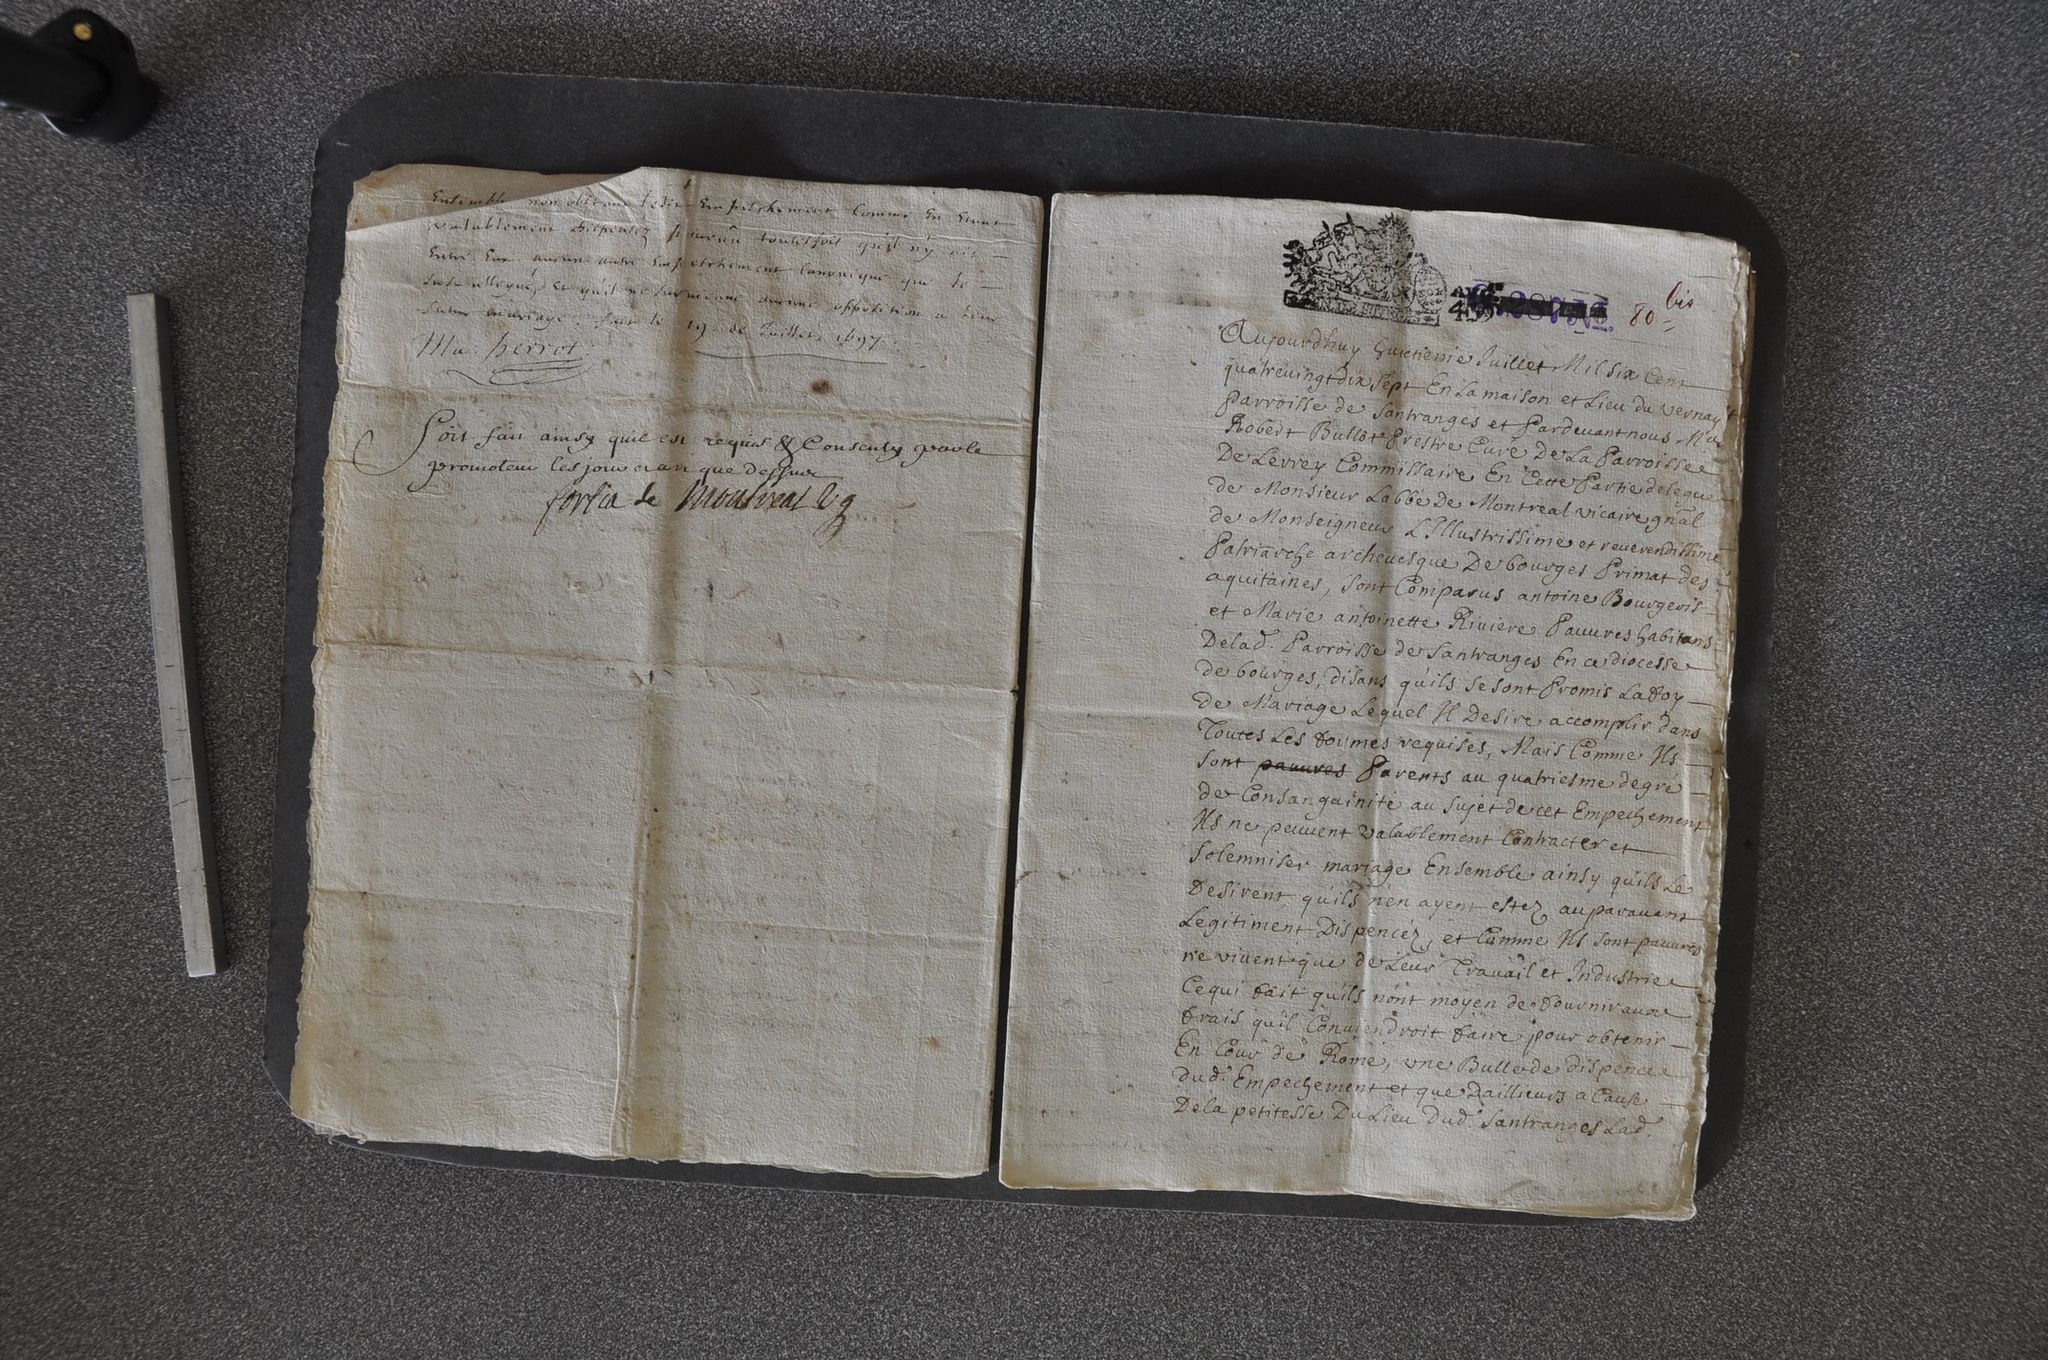 Ensemble non obstant ledit Empeschement comme En étant
valablement dispensez pourvu toutesfois qu'il n'y ait
Entre Eux aucun autre Empeschement Canonique que le
susallegué, et qu'il ne survienne aucune opposition a leur
futur mariage. fait le 19e de Juillet 1697.
Ma: herrot
Soit fait ainsy quil est requis & Consenty par le
promoteur les jour et an que dessus
fortia de Montreal Vg
80 bis
Aujourdhuy huictieme Juillet Mil six Cent
quatrevingt dix sept En La maison et Lieu du vernay
Parroisse de Santranges et Pardevant nous Me
Robert Bullot Prestre Curé De La Parroisse
De Levrey Commissaire En Cette Partie delegué
de Monsieur Labbé de Montreal vicaire gnãl
de Monseigneur L'Illustrissime et reuerendissime
Patriarche archeuesque De bourges Primat des
aquitaines, sont Comparus antoine Bourgeois
et Marie antoinette Riviere Pauures habitans
De lad. Parroisse de Santranges En ce diocesse
de bourges, disans qu'ils se sont Promis La foy
de Mariage Lequel Il Desire accomplir dans
Toutes Les formes requises, Mais Comme Ils
sont pauures Parents au quatriesme degré
de Consanguinité au sujet de cet Empechement
Ils ne peuuent valablement Contracter et
solemniser mariage Ensemble ainsy quils Le
Desirent, quils n'en ayent estez auparauant
Legitiment Dispencéz, et Comme Ils sont pauures
ne viuent que de Leur Travail et Industrie
Cequi fait qu'ils n'ont moyen de fournir aux
frais qu'il Conuiendroit faire pour obtenir
En Cour de Rome, vne Bulle de dispence
dud. Empechement et que Dailleurs a Cause
De la petitesse Du Lieu Dud. Santranges Lad.